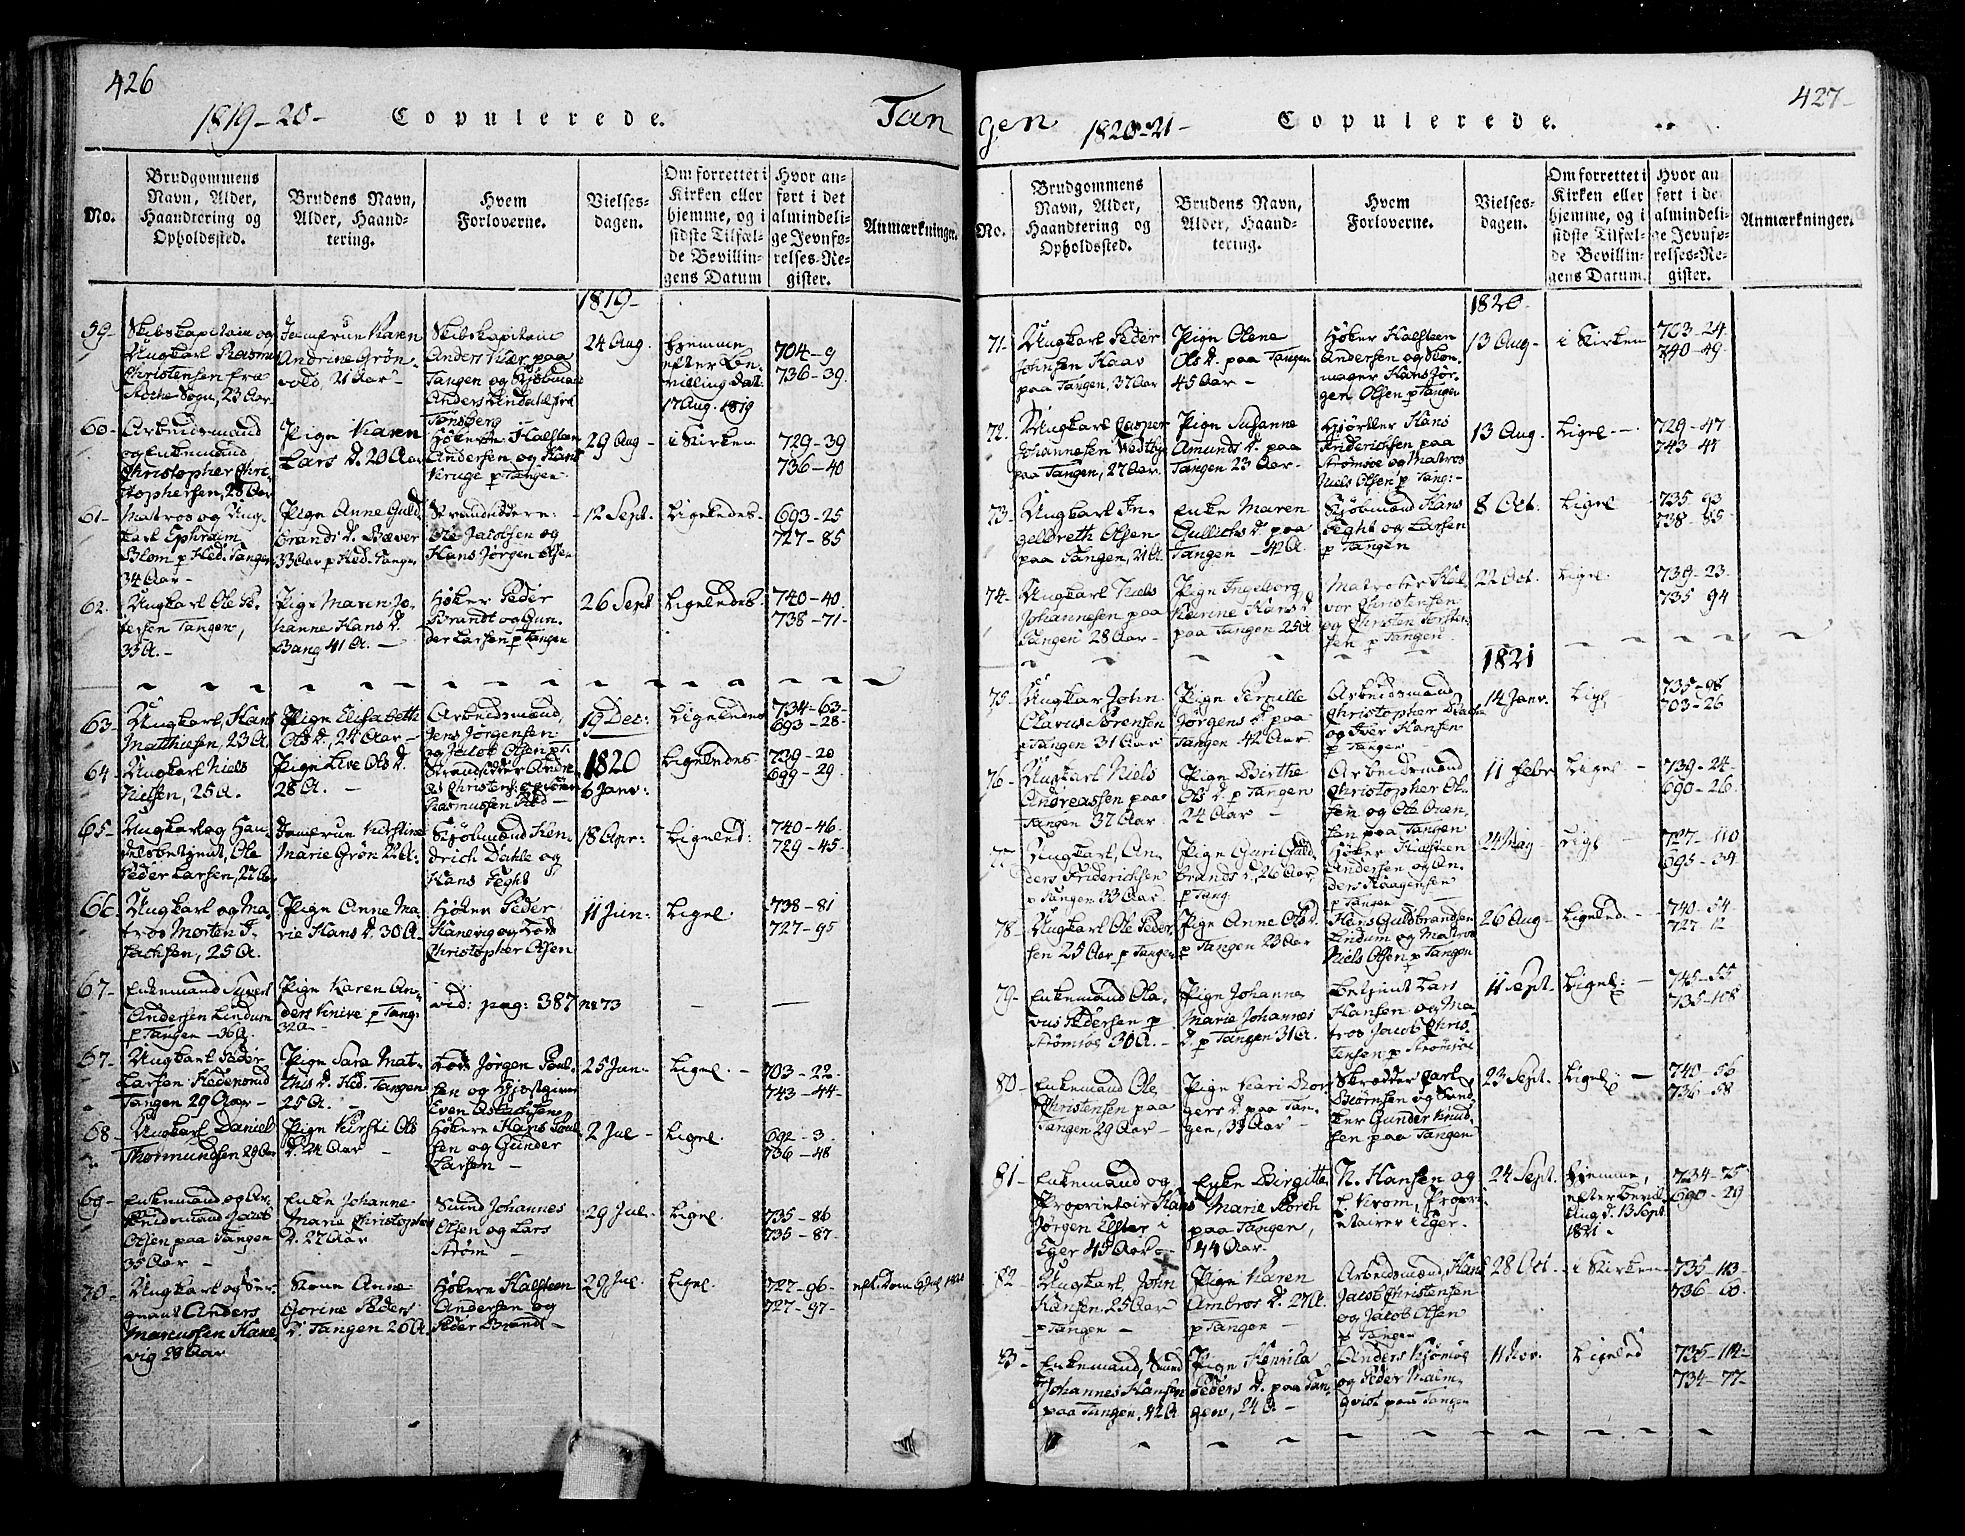 426
1819-20- Copulerede. Tan
No.
Brudgommens
Navn, Alder,
Haandtering og
Opholdssted.
Brudens Navn,
Alder, Haand-
tering.
Hvem
Forloverne.
Vielses-
dagen.
Om forrettet i
Kirken eller
hjemme, og i
sidste Tilfæl-
de Bevillin-
gens Datum
Hvor an-
ført i det
almindeli-
ge Jevnfø-
relses-Re-
gister.
Anmærkninger.
1819-
59-
Skibskapitain og
Ungkarl Rasmus
Christensen fra
Sogn, 23 Aar
Jomfrue Karen
Andrine Grøn-
vold, 21 Aar-
Skibskapitain
Anders Kiær paa
Tangen og Skibsmand
Anders Lindahl fra
Tønsberg
24 Aug.
Hjemme
efter Be-
villing dat.
17 Aug. 1819
704-9
736-39.
60-
Arbeidsmand
og Enkemand
Christopher Chri-
stophersen, 28 Aar
Pige Karen
Lars D. 20 Aar
Høkerne Halsteen
Andersen og Hans
Kruge p Tangen
29 Aug-
i Kirken
729-39
736-40
61-
Matros og Ung-
karl Ephraim
Blom p Hed. Tangen
34 Aar-
Pige Anne Guld-
brands D. Bæver
33 Aar p Hed. Tangen
Strandsiddere:
Ole Jacobsen og
Hans Jørgen Olsen
12 Sept.
Ligeledes-
693-25
727-85
62.
Ungkarl Ole Pe-
dersen Tangen,
33 A.-
Pige Maren Jo-
hanne Hans D.
Bang 41 A.-
Høker Peder
Brandt og Gun-
der Larsen p Tangen
26 Sept
Ligeledes.
740-40.
738-71-
63-
Ungkarl, Hans
Matthiesen, 23 A.
Pige Elisabeth
Ols D., 24 Aar-
Arbeidsmænd,
Jens Jørgensen
og Jacob Olsen p T.
19 Dec:
Ligeledes
734-63-
693-28-
1820
64-
Ungkarl Niels
Nielsen, 25 A.
Pige Live Ols D.
28 A.-
Strandsidder Andre-
as Christens: og Søren
Rasmussen Hed-
6 Janv:
Ligeledes
739-20
699-29-
65-
Ungkarl og Han-
delsbetjent, Ole
Peder Larsen, 22 Aar
Jomfrue Kirstine
Marie Grøn 22 A.
Skibsmænd Hen-
drich Dahle og
Hans Feght
18 Apr:
Ligeled:
740-46-
729-45-
66-
Ungkarl og Ma-
tros Morten I-
sachsen, 25 A.
Pige Anne Ma-
rie Hans D. 30 A.
Høker Peder
Hanevig og Lods
Christopher Olsen
11 Jun:
Ligel:
738-81
727-95
67-
Enkemand Syvert
Andersen Lindum
p Tangen-36 A.
Pige Karen An-
ders Knive p Tang.
32 A-
vid: pag: 387 no 73
67-
Ungkarl Peder
Larsen Hedenstad
Tangen 29 Aar-
Pige Sara Mat-
this D. Hed. Tangen
25 A.-
Lods Jørgen Poul-
sen og Gjæstgiver
Even Aslachsen
25 Jun-
Ligel.-
703-22-
743-44-
68-
Ungkarl Daniel
Thormundsen 29 Aar
Pige Kirsti Ols
D. 24 Aar-
Høkere Hans Poul-
sen og Gunder
Larsen-
2 Jul-
Ligel.
692-3.
736-48
69-
Enkemand og Ar-
beidsmand Jacob
Olsen paa Tangen
35 Aar-
Enke Johanne
Marie Christophers
D. 27 Aar
Sund Johannes
Olsen og Lars
Strøm-
29 Jul-
Ligel.
735-86
735-87-
70-
Ungkarl og Ser-
geant Anders
Marcussen Hane-
vig 28 Aar
Kone Anne
Gorine Peders
D. Tangen 26 A.
Høkere Halsteen
Andersen og
Peder Brandt-
29 Jul.
Ligel.
727-96-
727-97-
427-
gen 1820-21- Copulerede.
No.
Brudgommens
Navn, Alder,
Haandtering og
Opholdssted.
Brudens Navn,
Alder, Haand-
tering.
Hvem
Forloverne.
Vielses-
dagen.
Om forrettet i
Kirken eller
hjemme, og i
sidste Tilfæl-
de Bevillin-
gens Datum.
Hvor an-
ført i det
almindeli-
ge Jevnfø-
relses-Re-
gister.
Anmærkninger.
1820-
71-
Ungkarl Peder
Johnsen Haav
paa Tangen, 37 Aar
Pige Olene
Ols D. paa Tangen
45 Aar-
Høker Halsteen
Andersen og Skoe-
mager Hans Jør-
gen Olsen p Tangen
13 Aug-
i Kirken
703-24
740-49-
72-
Ungkarl Casper
Johannesen Wedbye
paa Tangen, 27 Aar
Pige Susanne
Amunds D. paa
Tangen 23 Aar-
Hans
Anderssen paa
Strømsøe og Matros
Niels Olsen p Tang:-
13 Aug.
Ligel-
729-47
743-45
73-
Ungkarl In-
gelbreth Olsen
paa Tangen, 21 A.
Enke Maren
Gullichs D. paa
Tangen-42 A.
Skibmand Hans
Feght og Larsen
p Tangen
8 Oct.
Ligel
735-93
738-85
74-
Ungkarl Niels
Johannesen paa
Tangen 28 Aar-
Pige Ingeborg
Katrine Hans D.
paa Tangen 25 A
Matroser Hal-
vor Christensen
og Christen Torste-
sen p Tangen
22 Oct.
Ligel.
739-23.
735-94
1821
75-
Ungkarl John
Olavus Sørensen
p Tangen 31 Aar
Pige Pernille
Jørgens D. paa
Tangen 42 Aar
Arbeidsmand
Christopher
og Iver Hansen
p Tangen-
14 Janv.
Ligl.
735-98
703-26
76-
Ungkarl Niels
Andreassen paa
Tangen 37 Aar
Pige Birthe
Ols D. p Tangen
24 Aar-
Arbeidsmand
Christopher Ol-
sen og Ole Oven-
sen paa Tangen
11 Febr
Ligel-
739-24-
690-26-
77-
Ungkarl, An-
ders Friderichsen
p Tangen 33 Aar-
Pige Guri Guld-
brands D., 26 Aar
p Tang.
Høker Halsteen
Andersen og An-
ders Haagensen
p Tangen-
24 May-
Ligl-
727-110
695-34
78-
Ungkarl Ole Peder-
sen 25 Aar p Tangen
Pige Anne Ols D
p Tangen 23 Aar
Hans Guldbrandsen
Lindum og Matros
Niels Olsen p Tangen
26 Aug-
Ligeled-
740-54-
727-12
79-
Enkemand Ola-
vus Pedersen p
Strømsøe 30 A.-
Pige Johanne
Marie Johannes
D. p Tangen 31 A.
Betjent Lars
Hansen og Ma-
tros Jacob Chris-
tensen p Strømsøe
11 Sept.
Ligel:-
745-55
735-108
80-
Enkemand Ole
Christensen paa
Tangen 29 Aar-
Pige Kari Bor-
gers D. paa Tan-
gen, 33 Aar-
Skrædder Carl
Biørnsen og
Gunder Knud-
sen paa Tangen
23 Sept.
Ligel-
740-56
736-58
81-
Enkemand og
Proprietair Hans
Jørgen Elster i
Eger 45 Aar-
Enke Birgitte
Marie Storch
paa Tangen,
44 Aar-
N. Hansen og
C. Krom, Propri-
etairer i Eger-
24 Sept.
Hjemme,
efter Bevil-
ling d. 13 Sept.
1821-
734-75
690-29
82-
Ungkarl John
Hansen, 25 Aar
p Tangen-
Pige Karen
Ambros D. 27 A.
p Tangen-
Arbeidsmænd, Hans
Jacob Christensen
og Jacob Olsen
p Tangen
28 Oct.
i Kirken
735-113
736-60.
83-
Enkemand, Sund
Johannes Hansen
paa Tangen, 42 A
Pige Henrika
Peders D. paa Tan-
gen, 24 A-
Anders Kjømøe
og Peder Malm-
qvist paa Tangen
11 Nov.
Ligeled
735-114-
734-77-